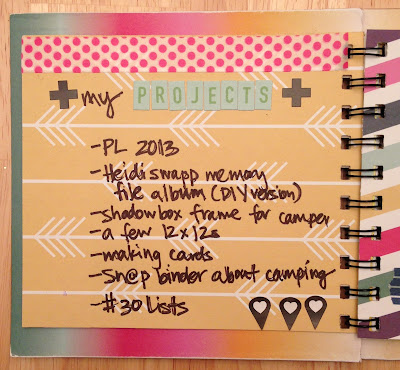 my PROJECTS
- PL 2013
- Heidi swapp memory
file album (DIY version)
- shadowbox frame for camper
- a few 12x12s
- making cards
- Sn@p binder about camping
- #30Lists